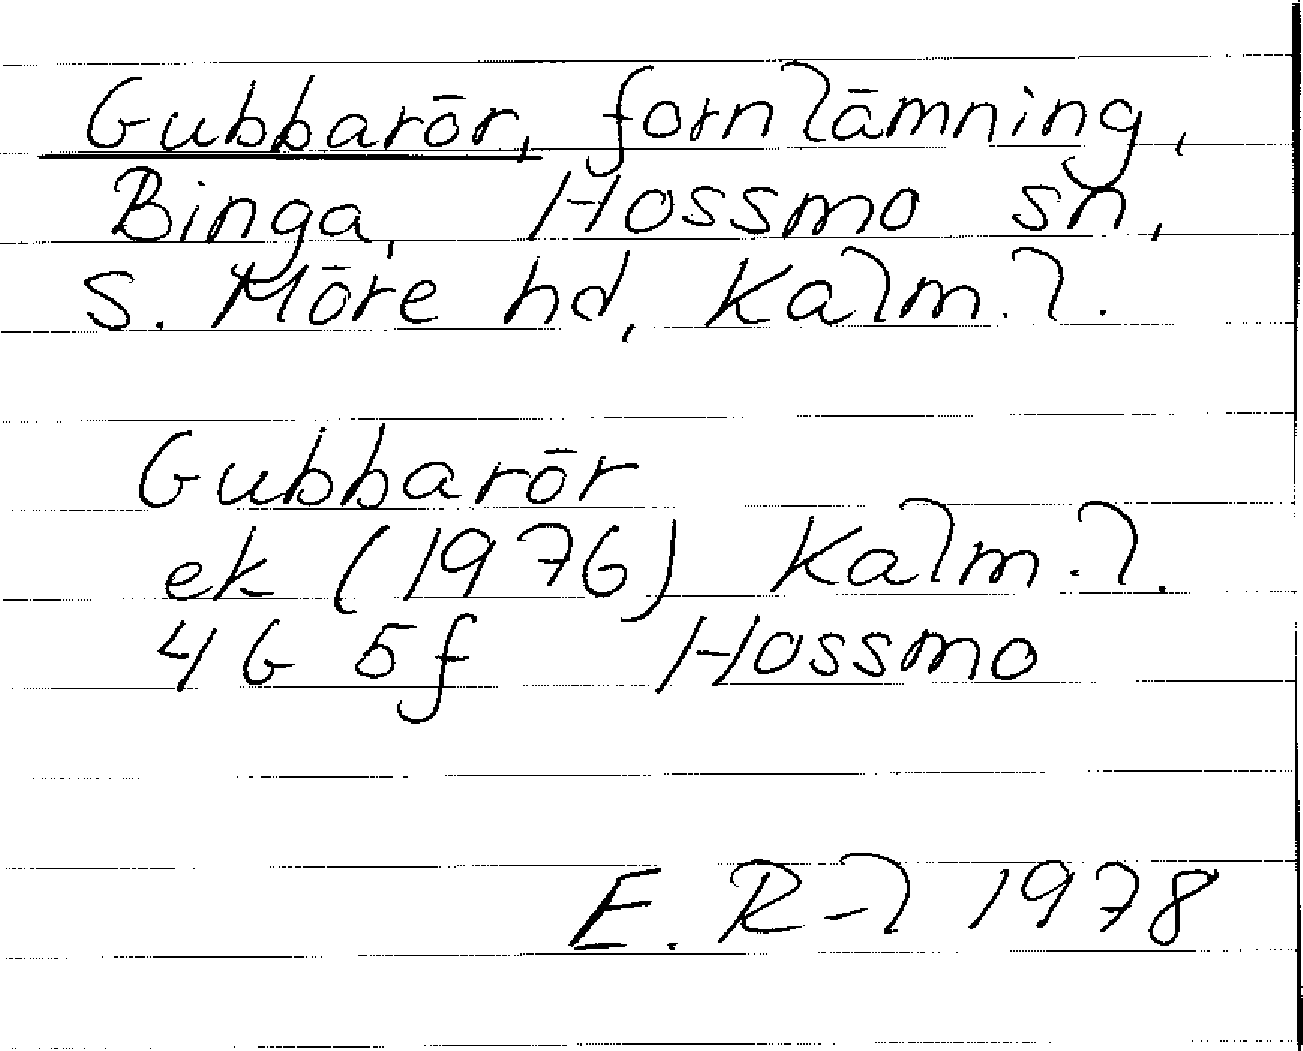 Gubbarör, fornlämning,
Binga, Hossmo sn,
S. Möre hd, Kalm. l.
Gubbarör
ek (1976) Kalm. l.
4G 5f Hossmo
E. R-l 1978